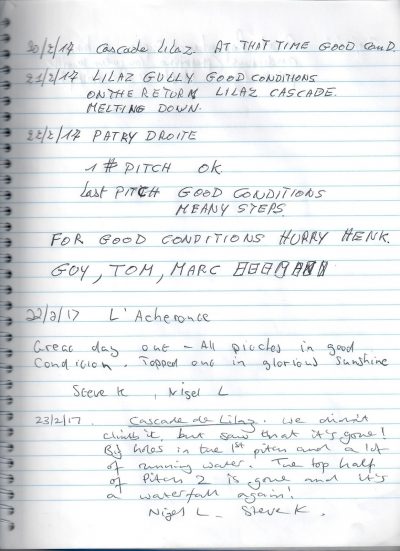 20/2/17 Cascade Lilaz. AT THAT TIME GOOD ConD.
21/2/17 LILAZ GULLY GOOD CONDITIONS
ON THE RETURN LILAZ CASCADE.
MELTING DOWN.
22/2/17 PATRY DROITE
1 # PITCH OK.
last PITCH GOOD CONDITIONS
MEANY STEPS.
FOR GOOD CONDITIONS HURRY HENK.
GUY, TOM, MARC
22/2/17 L'Acherance
Great day out - All pitches in good
Condition. Topped out in glorious Sunshine
Steve K, Nigel L
23/2/17. Cascade de Lilaz. We didn't
climb it, but saw that it's gone!
Big holes in the 1st pitch and a lot
of running water. The top half
of Pitch 2 is gone and it's
a waterfall again!
Nigel L. Steve K.